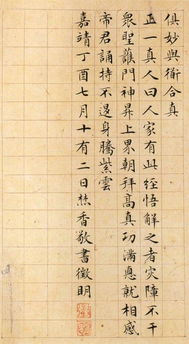 俱妙與衜合真
正一真人曰人家有此經悟解之者灾障不干
衆聖護門神昇上界朝拜高真功滿德就相感
帝君誦持不退身騰紫雲
嘉靖丁酉七月十有二日焚香敬書徵明